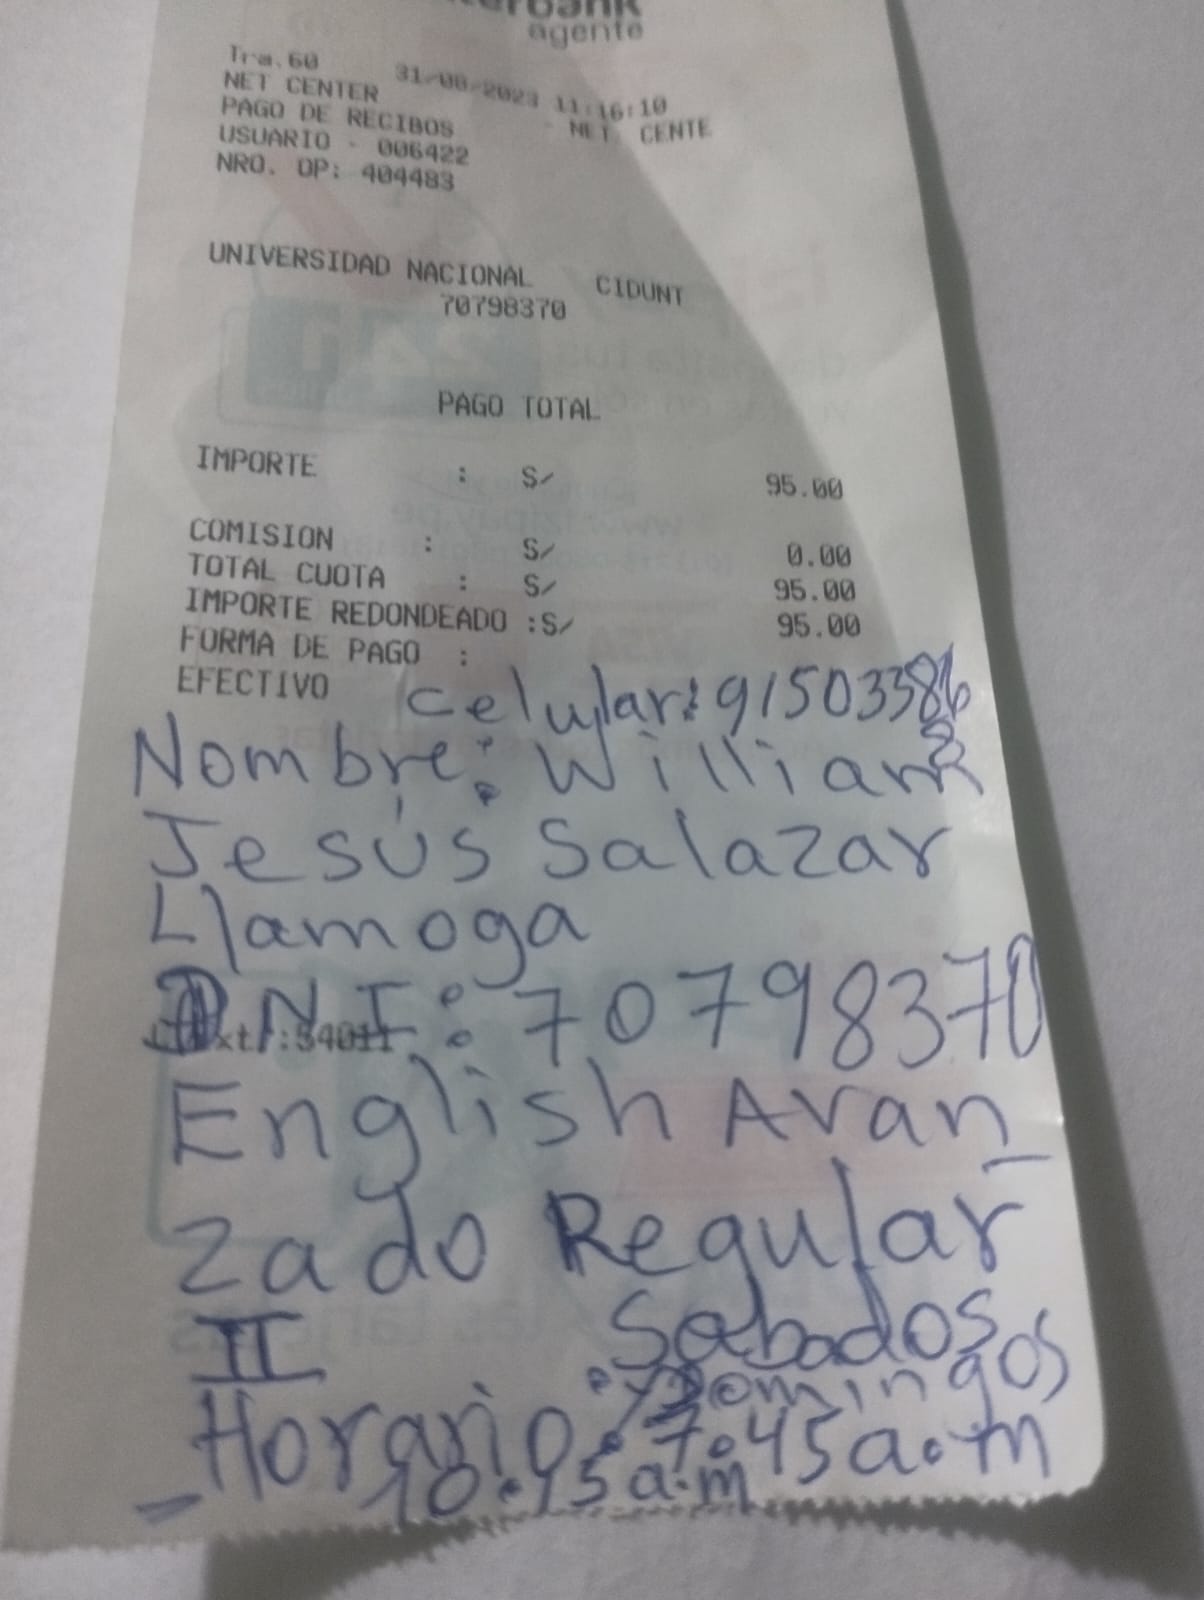 agente
Tra.60 31/08/2023 11:16:10
NET CENTER - NET CENTE
PAGO DE RECIBOS
USUARIO - 006422
NRO. OP: 404483
UNIVERSIDAD NACIONAL CIDUNT
70798370
PAGO TOTAL
IMPORTE : S/ 95.00
COMISION : S/ 0.00
TOTAL CUOTA : S/ 95.00
IMPORTE REDONDEADO :S/ 95.00
FORMA DE PAGO :
EFECTIVO
celular:
Nombre: William
Jesús Salazar
Llamoga
DNI: 70798370
English Avan_
zado Regular
II Sabados
y Domingos
Horario: 7:45a.m
_ 10:45a.m